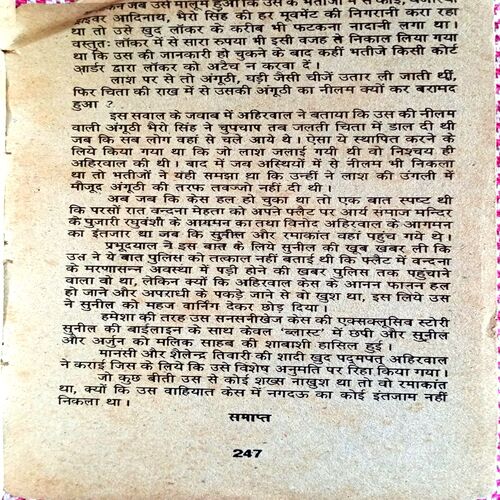 जब उसे मालूम हुआ कि उस के भतीजों में से कोई,
ड्राइवर आदिनाथ, भैरो सिंह की हर मूवमेंट की निगरानी करा रहा
था तो उसे खुद लॉकर के करीब भी फटकना नादानी लगा था।
वस्तुतः लॉकर में से सारा रुपया भी इसी वजह से निकाल लिया गया
था कि उस की जानकारी हो चुकने के बाद कहीं भतीजे किसी कोर्ट
आर्डर द्वारा लॉकर को अटेच न करवा दें।
लाश पर से तो अंगूठी, घड़ी जैसी चीजें उतार ली जाती थीं,
फिर चिता की राख में से उसकी अंगूठी का नीलम क्यों कर बरामद
हुआ ?
इस सवाल के जवाब में अहिरवाल ने बताया कि उस की नीलम
वाली अंगूठी भैरो सिंह ने चुपचाप तब जलती चिता में डाल दी थी
जब कि सब लोग वहां से चले आये थे। ऐसा ये स्थापित करने के
लिये किया गया था कि जो लाश जलाई गयी थी वो निश्चय ही
अहिरवाल की थी। बाद में जब अस्थियों में से नीलम भी निकला
था तो भतीजों ने यही समझा था कि उन्हीं ने लाश की उंगली में
मौजूद अंगूठी की तरफ तवज्जो नहीं दी थी।
अब जब कि केस हल हो चुका था तो एक बात स्पष्ट थी
कि परसों रात वन्दना मेहता को अपने फ्लैट पर आर्य समाज मन्दिर
के पुजारी रघुवंशी के आगमन का तथा विनोद अहिरवाल के आगमन
का इंतजार था जब कि सुनील और रमाकांत वहां पहुंच गये थे।
प्रभूदयाल ने इस बात के लिये सुनील की खूब खबर ली कि
उस ने ये बात पुलिस को तत्काल नहीं बताई थी कि फ्लैट में वन्दना
के मरणासन्न अवस्था में पड़ी होने की खबर पुलिस तक पहुंचाने
वाला वो था, लेकिन क्यों कि अहिरवाल केस के आनन फानन हल
हो जाने और अपराधी के पकड़े जाने से वो खुश था, इस लिये उस
ने सुनील को महज वार्निंग देकर छोड़ दिया।
हमेशा की तरह उस सनसनीखेज केस की एक्सक्लूसिव स्टोरी
सुनील की बाईलाइन के साथ केवल ‘ब्लास्ट’ में छपी और सुनील
और अर्जुन को मलिक साहब की शाबाशी हासिल हुई।
मानसी और शैलेन्द्र तिवारी की शादी खुद पदुमपत् अहिरवाल
ने कराई जिस के लिये कि उसे विशेष अनुमति पर रिहा किया गया।
जो कुछ बीती उस से कोई शख्स नाखुश था तो वो रमाकांत
था, क्यों कि उस वाहियात केस में नगदऊ का कोई इंतजाम नहीं
निकला था।
समाप्त
247